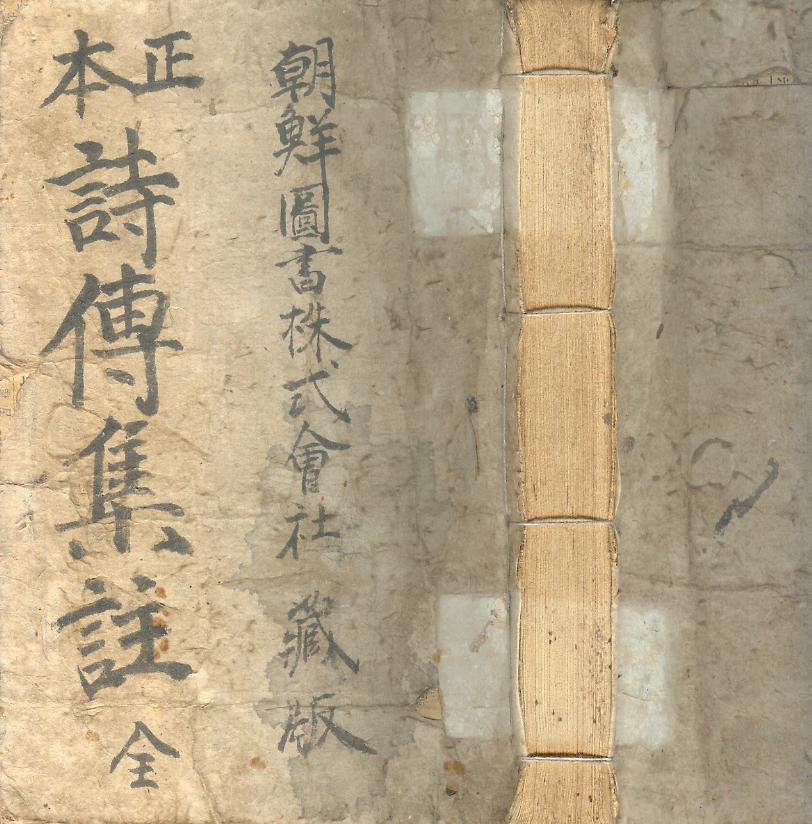 正本
詩傳集註 全
朝鮮圖書株式會社 藏版